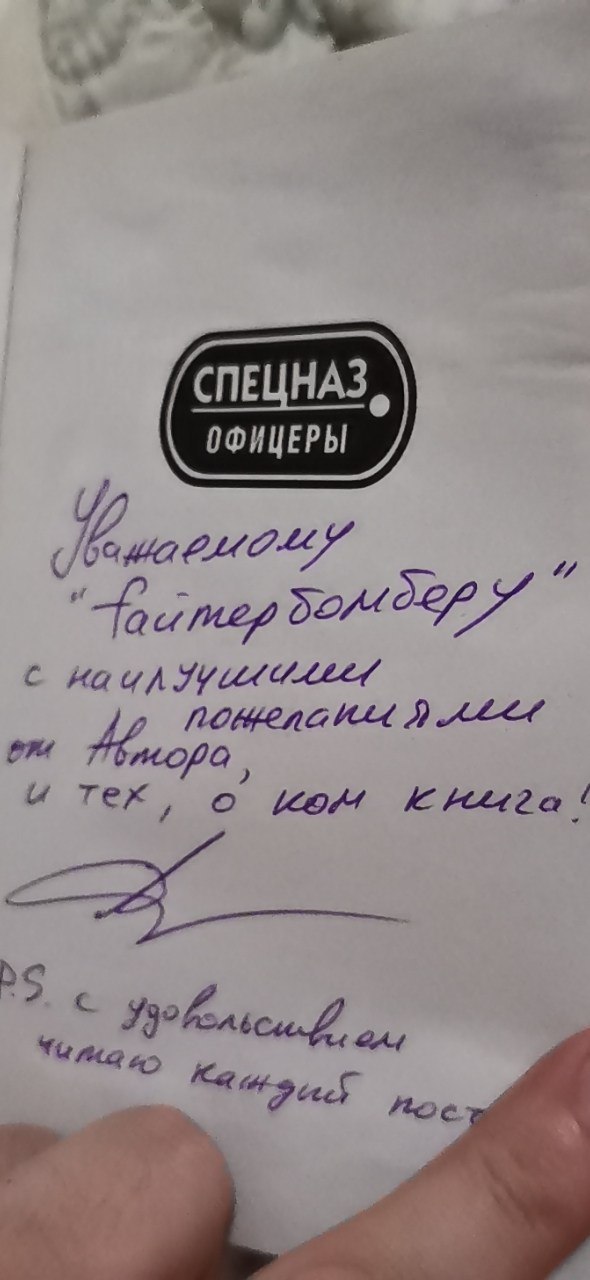 СПЕЦНАЗ
ОФИЦЕРЫ
Уважаемому
"Файтербомберу"
с наилучшими
пожеланиями
от Автора,
и тех, о ком книга!
P.S. с удовольствием
читаю каждый пост